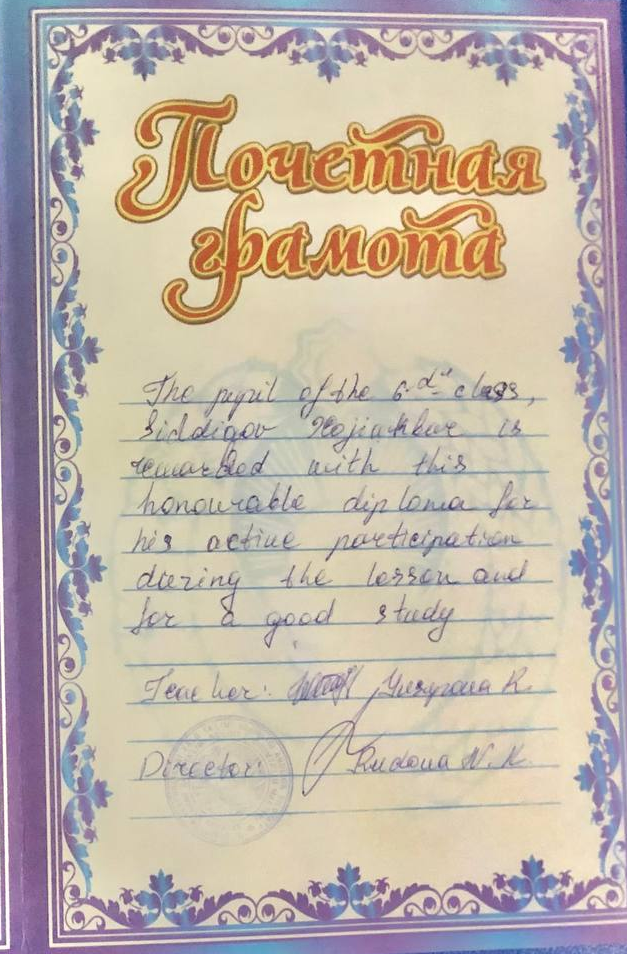 Почетная
грамота
The pupil of the 6 "d" class,
Siddigov Xojiakbar is
rewarded with this
honourable diploma for
his active participation
during the lesson and
for a good study
Teacher: R.
Director: N. K.